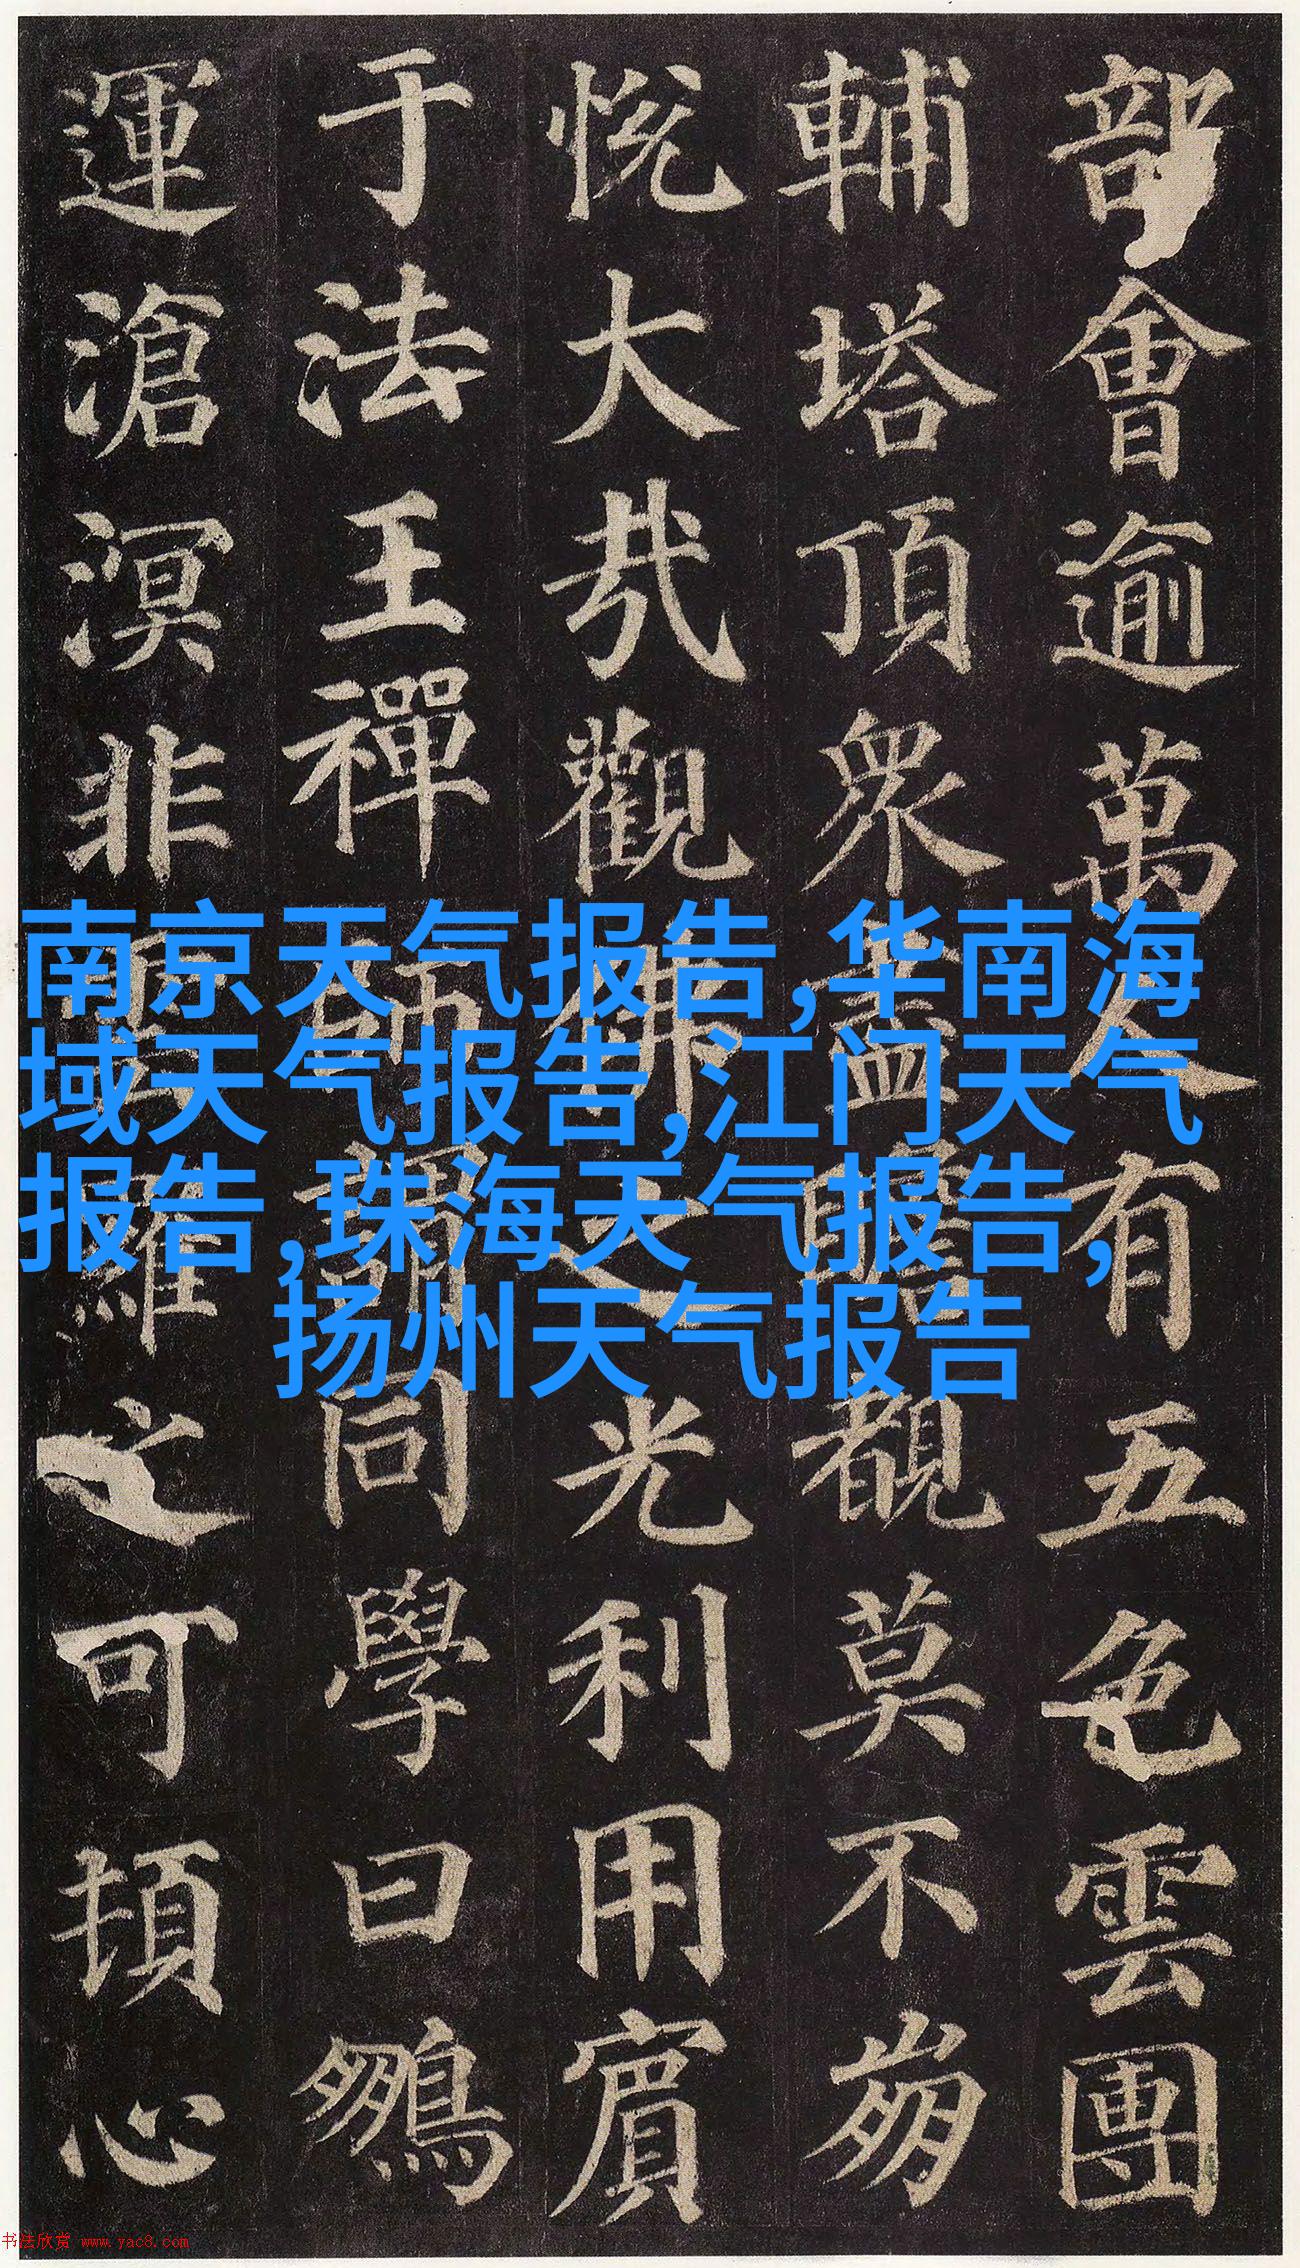 部會逾萬人有五色雲團
輔塔頂眾盡瞻覩莫不崩
悅大哉觀佛之光利用賓
于法王禪師謂同學曰鵬
運滄溟非雲羅之可頓心
南京天气报告,华南海
域天气报告,江门天气
报告,珠海天气报告,
扬州天气报告
书法欣赏 www.yac8.com